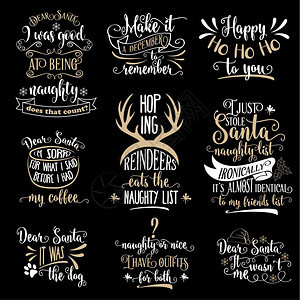 DEAR SANTA
I was good
AT BEING
naughty
does that count?
Make it
A DECEMBER
to
remember
Happy
HO HO HO
to you
Dear Santa
I'M SORRY
FOR WHAT I SAID
BEFORE I HAD
my coffee
HOP
ING
REINDEERS
eats the
NAUGHTY LIST
I JUST
STOLE
Santa
naughty list
IRONICALLY
IT'S ALMOST identical
to my friends list
Dear Santa
IT WAS
the dog
?
naughty or nice
I HAVE OUTFITS
for both
Dear Santa
IT
wasn't
me